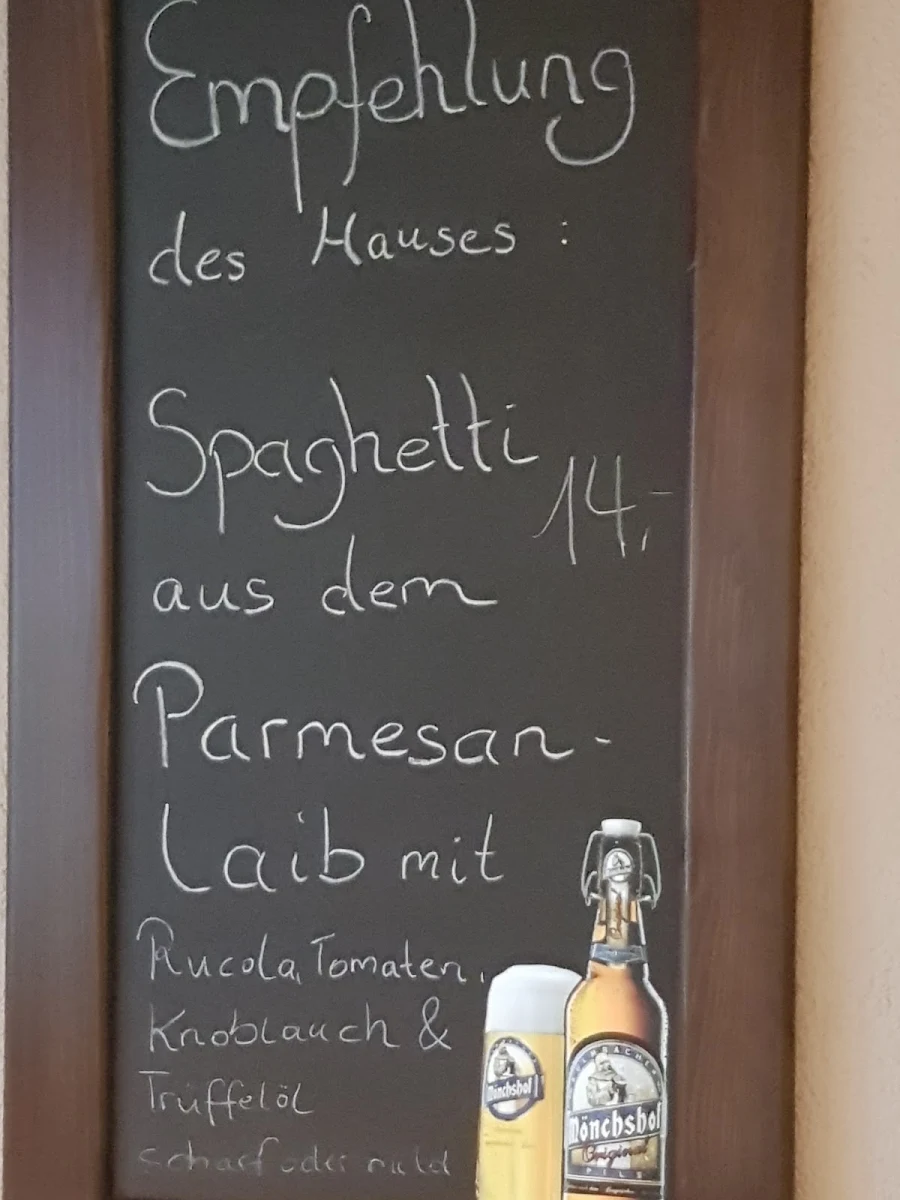 Empfehlung
des Hauses :
Spaghetti 14,-
aus dem
Parmesan-
Laib mit
Rucola, Tomaten,
Knoblauch &
Trüffelöl
scharf oder mild
Mönchshof
KULMBACHER
Mönchshof
Original
PILS